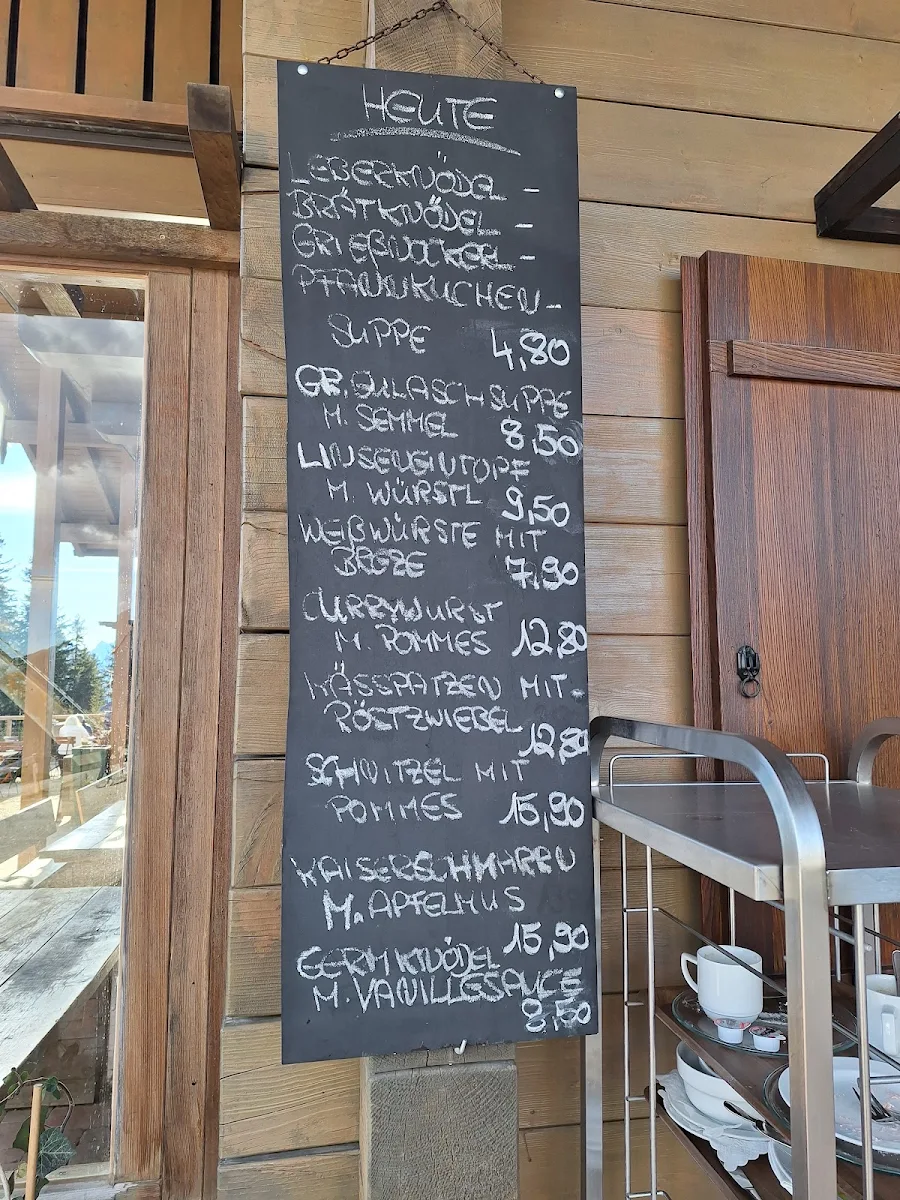 HEUTE
LEBERKNÖDEL -
BRÄTKNÖDEL -
GRIEßNOCKERL -
PFANNKUCHEN -
SUPPE 4,80
GR. GULASCHSUPPE
M. SEMMEL 8,50
LINSENEINTOPF
M. WÜRSTL 9,50
WEIßWÜRSTE MIT
BREZE 7,90
CURRYWURST
M. POMMES 12,80
KÄSSPATZEN MIT-
RÖSTZWIEBEL
12,80
SCHNITZEL MIT
POMMES 15,90
KAISERSCHMARRN
M. APFELMUS
15,90
GERMKNÖDEL
M. VANILLESAUCE
8,50